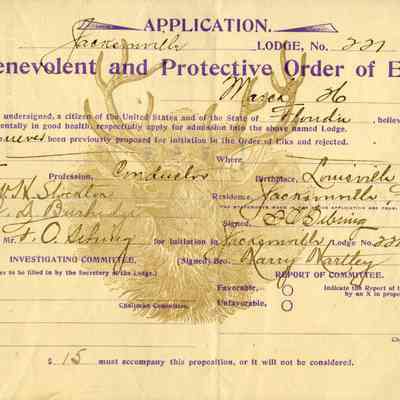 APPLICATION.
Jacksonville LODGE, No. 221
enevolent and Protective Order of E
March 26
undersigned, a citizen of the United States and of the State of Florida, believ
entally in good health, respectfully apply for admission into the above named Lodge.
never been previously proposed for initiation in the Order of Elks and rejected.
Where,
Profession, Conductor Birthplace, Louisville
W. H. Stockton Residence, Jacksonville
Signed,
Mr. F. O. for initiation in Jacksonville Lodge No. 221
INVESTIGATING COMMITTEE. (Signed) Bro. Harry Hartley
es to be filled in by the Secretary of the Lodge.) REPORT OF COMMITTEE.
Favorable, - Indicate the Report of t
by an X in prope
Unfavorable,
Chairman Committee.
Ch
$ 15 must accompany this proposition, or it will not be considered.